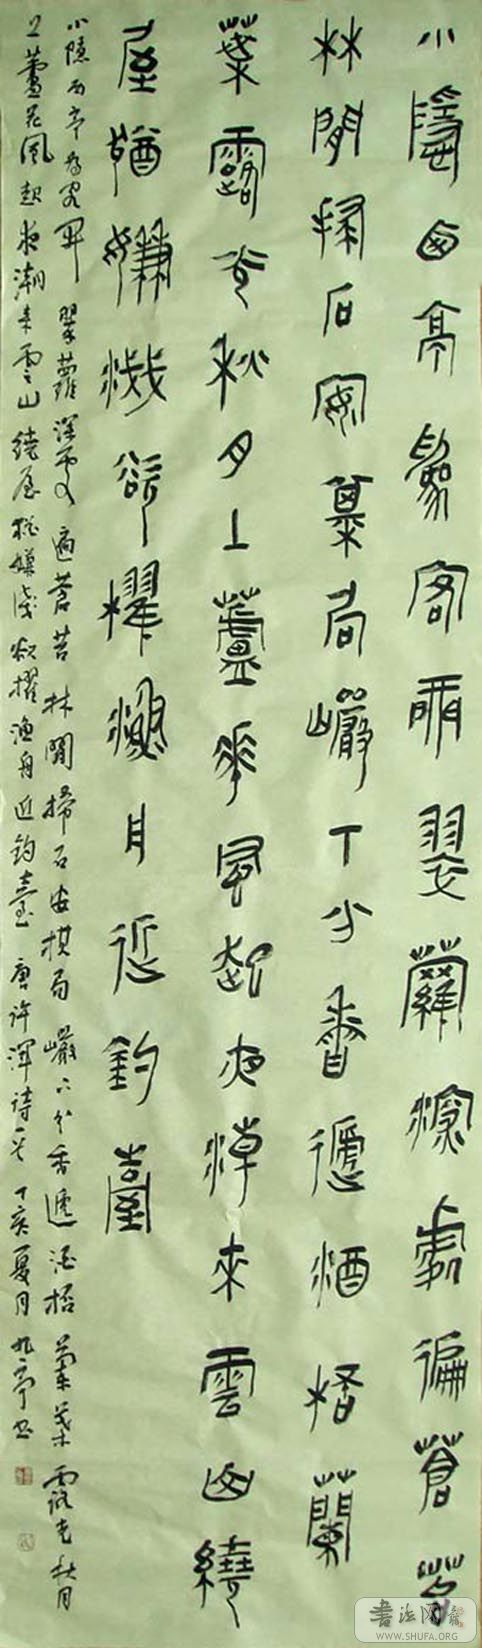 小隱西亭為客開翠蘿深處徧蒼苔
林間掃石安棊局巖下分香遞酒桮蘭
葉露光秋月上蘆華風起夜潮來雲山繞
屋猶嫌淺欲櫂漁舟近釣臺
小隱西亭為客開翠蘿深處遍蒼苔林間掃石安棋局巖下分香遞酒桮蘭葉露光秋月
上蘆花風起夜潮來雲山繞屋猶嫌淺欲櫂漁舟近釣臺唐許渾詩一首丁亥夏月九亭書
书法网
WWW.SHUFA.ORG